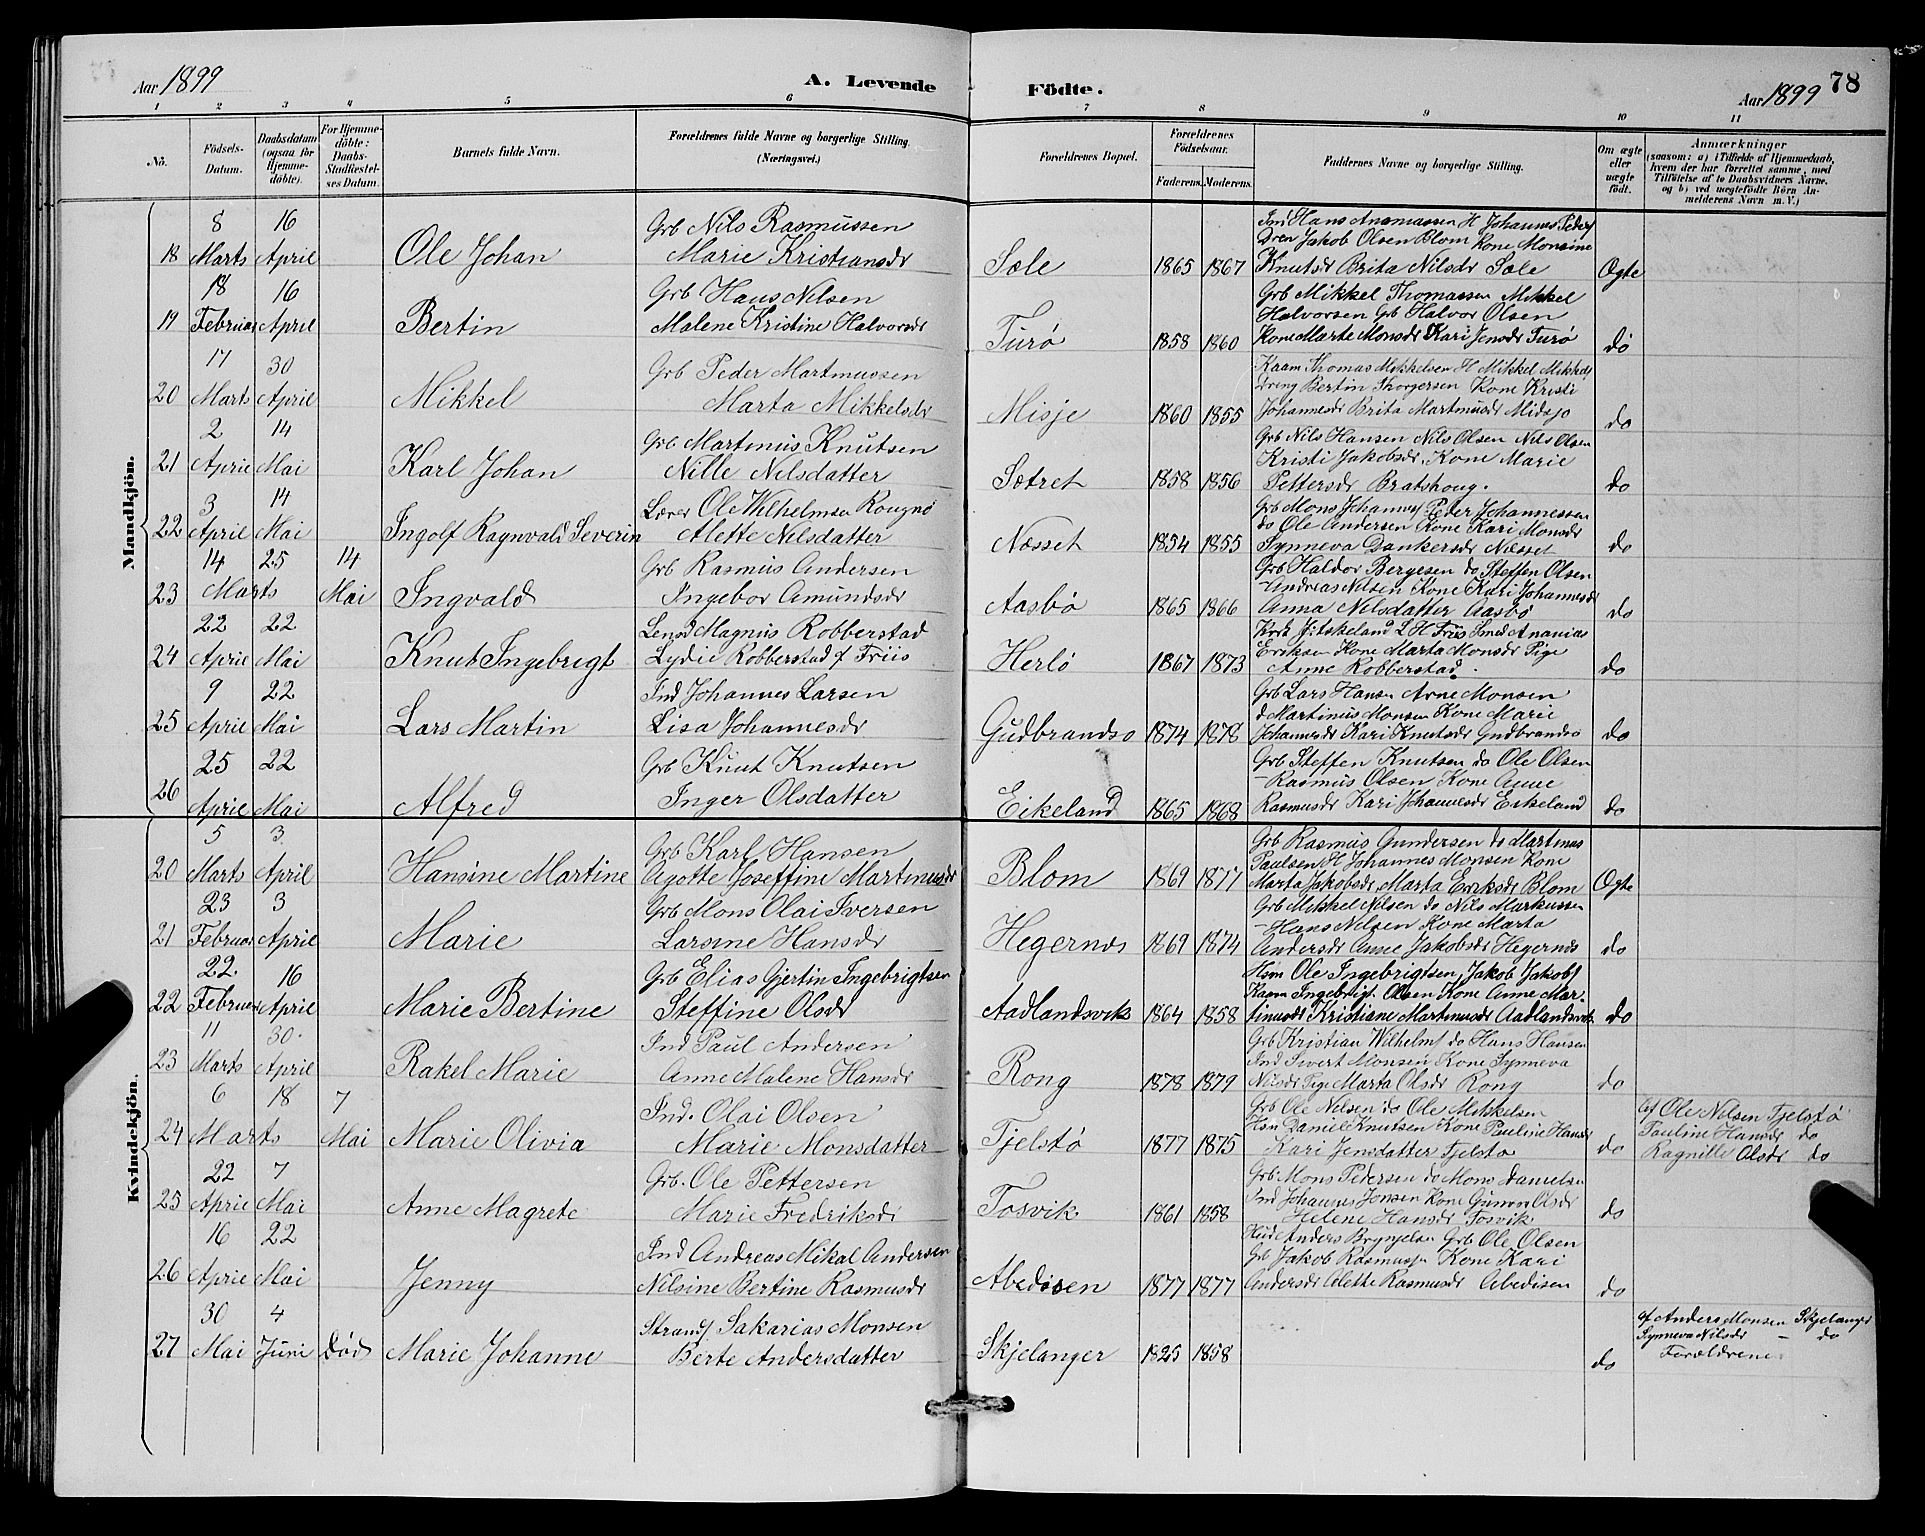 Aar 1899
A. Levende
Födte.
Aar 1899
78
1 2 3 4 5 6 7 8 9 10 11
No.
Födsels-Datum.
Daabsdatum (ogsaa for Hjemme-döbte).
For Hjemme-döbte: Daabs-Stadfæstel-ses Datum.
Barnets fulde Navn.
Forældrenes fulde Navne og borgerlige Stilling. (Næringsvei.)
Forældrenes Bopæl.
Forældrenes Födselsaar.
Faderens. Moderens.
Faddernes Navne og borgerlige Stilling.
Om ægte eller uægte födt.
Anmærkninger
(saasom: a) i Tilfælde af Hjemmedaab, hvem der har forrettet samme, med Tilföielse af to Daabsvidners Navne, og b) ved uægtefödte Börn An-melderens Navn m. V.)
Mandkjön.
8 16 Grb Nils Rasmussen
18 Marts April Ole Johan Marie Kristiansdr Sæle 1865 1867 Ægte
Dren Jakob Olsen Blom Kone Monsine
Knutsdr Brita Nilsdr Sæle
18 16 Grb Hans Nilsen
19 Februar April Bertin Malene Kristine Halvorsdr Turø 1858 1860 do
Grb Mikkel Thomassen Mikkel
Halvorsen Grb Halvor Olsen
Kone Marte Monsdr Kari Jensdr Turø
17 30 Grb Peder Martinussen
20 Marts April Mikkel Marta Mikkelsdr Misje 1860 1855 do
Kaam Thomas Mikkelsen H Mikkel Mikkels
Dreng Bertin Thorgersen Kone Kristi
Johannesdr Brita Martinusdr Midsjo
2 14 Grb Martinus Knutsen
21 April Mai Karl Johan Nille Nilsdatter Sætret 1858 1856 do
Grb Nils Hansen Nils Olsen Nils Olsen
Kristi Jakobsdr. Kone Marie
Pettersdr Bratshoug.
3 14 Lærer Ole Wilhelmsen Rougnø
22 April Mai Ingolf Ragnvald Severin Alette Nilsdatter Næsset 1854 1855 do
Grb Mons Johannes Peder Johannessen
do Ole Andersen Kone Kari Monsdr
Synneva Dankersdr Næsset
14 25 14 Grb Rasmus Andersen
23 Marts Mai Ingvald Ingebor Amundsdr Aasbø 1865 1866 do
Grb Haldor Bergesen do Steffen Olsen
- Andreas Nilsen Kone Kari Johannesdr
Anna Nilsdatter Aasbø
22 22 Lensd Magnus Robberstad
24 April Mai Knut Ingebrigt Lydie Robberstad f Friis Herlö 1867 1873 do
L H Friis Smed Ananias
Eriksen Kone Marta Monsdr Pige
Anne Robberstad.
9 22 Ind Johannes Larsen
25 April Mai Lars Martin Lisa Johannesdr Gudbrandsø 1874 1878 do
Grb Lars Hansen Arne Monsen
d Martinus Monsen Kone Marie
Johannesdr Kari Knutsdr Gudbrandsø
25 22 Grb Knut Knutsen
26 April Mai Alfred Inger Olsdatter Eikeland 1865 1868 do
Grb Steffen Knutsen do Ole Olsen
- Rasmus Olsen Kone Anne
Rasmusdr Kari Johannesdr Eikeland
Kvindekjön.
5 3 Grb Karl Hansen
20 Marts April Hansine Martine Agotte Joseffine Martinusdr Blom 1869 1877 Ægte
Grb Rasmus Gundersen do Martinus
Paulsen H Johannes Monsen Kone
Marta Jakobsdr. Marta Eriksdr Blom
23 3 Grb Mons Olai Iversen
21 Februar April Marie Larsine Hansdr Hegernæs 1869 1874 do
Grb Mikkel Nilsen do Nils Markussen
- Hans Nilsen Kone Marta
Andersdr Anne Jakobsdr Hegernæs
22 16 Grb Elias Gjertin Ingebrigtsen
22 Februar April Marie Bertine Steffine Olsdr Aadlandsvik 1864 1858 do
Hsm Ole Ingebrigtsen Jakob Jakobs
Kaam Ingebrigt Olsen Kone Anne Mar-
tinusdr Kristiane Martinusdr Aadlandsvik
11 30 Ind Paul Andersen
23 Marts April Rakel Marie Anne Malene Hansdr Rong 1878 1879 do
Grb Kristian Wilhelms do Hans Hansen
Ind Sivert Monsen Kone Synneva
Nilsdr Pige Marta Olsdr Rong
6 18 7 Ind. Olai Olsen
24 Marts Mai Marie Olivia Marie Monsdatter Tjelstø 1877 1875 do
Grb Ole Nilsen do Ole Mikkelsen
Hsm Daniel Knutsen Kone Pauline Hansdr
Kari Jensdatter Tjelstø
af Ole Nilsen Tjelstø
Pauline Hansdr do
Ragnille Olsdr do
22 7 Grb. Ole Pettersen
25 April Mai Anne Magrete Marie Fredriksdr Tosvik 1861 1858 do
Grb. Mons Pedersen do Mons Danielsen
Ind Johannes Jensen Kone Gunvor Olsdr
Helene Hansdr Tosvik
16 22 Ind Andreas Mikal Andersen
26 April Mai Jenny Nilsine Bertine Rasmusdr Abedisen 1877 1877 do
Anders Brynjelsen Grb Ole Olsen
Grb Jakob Rasmussen Kone Kari
Andersdr Alette Rasmusdr Abedisen
30 4 Strands. Sakarias Monsen
27 Mai Juni död Marie Johanne Berte Andersdatter Skjelanger 1825 1858 do
af Anders Monsen Skjelanger
Synneva Nilsdr - do
Forældrene